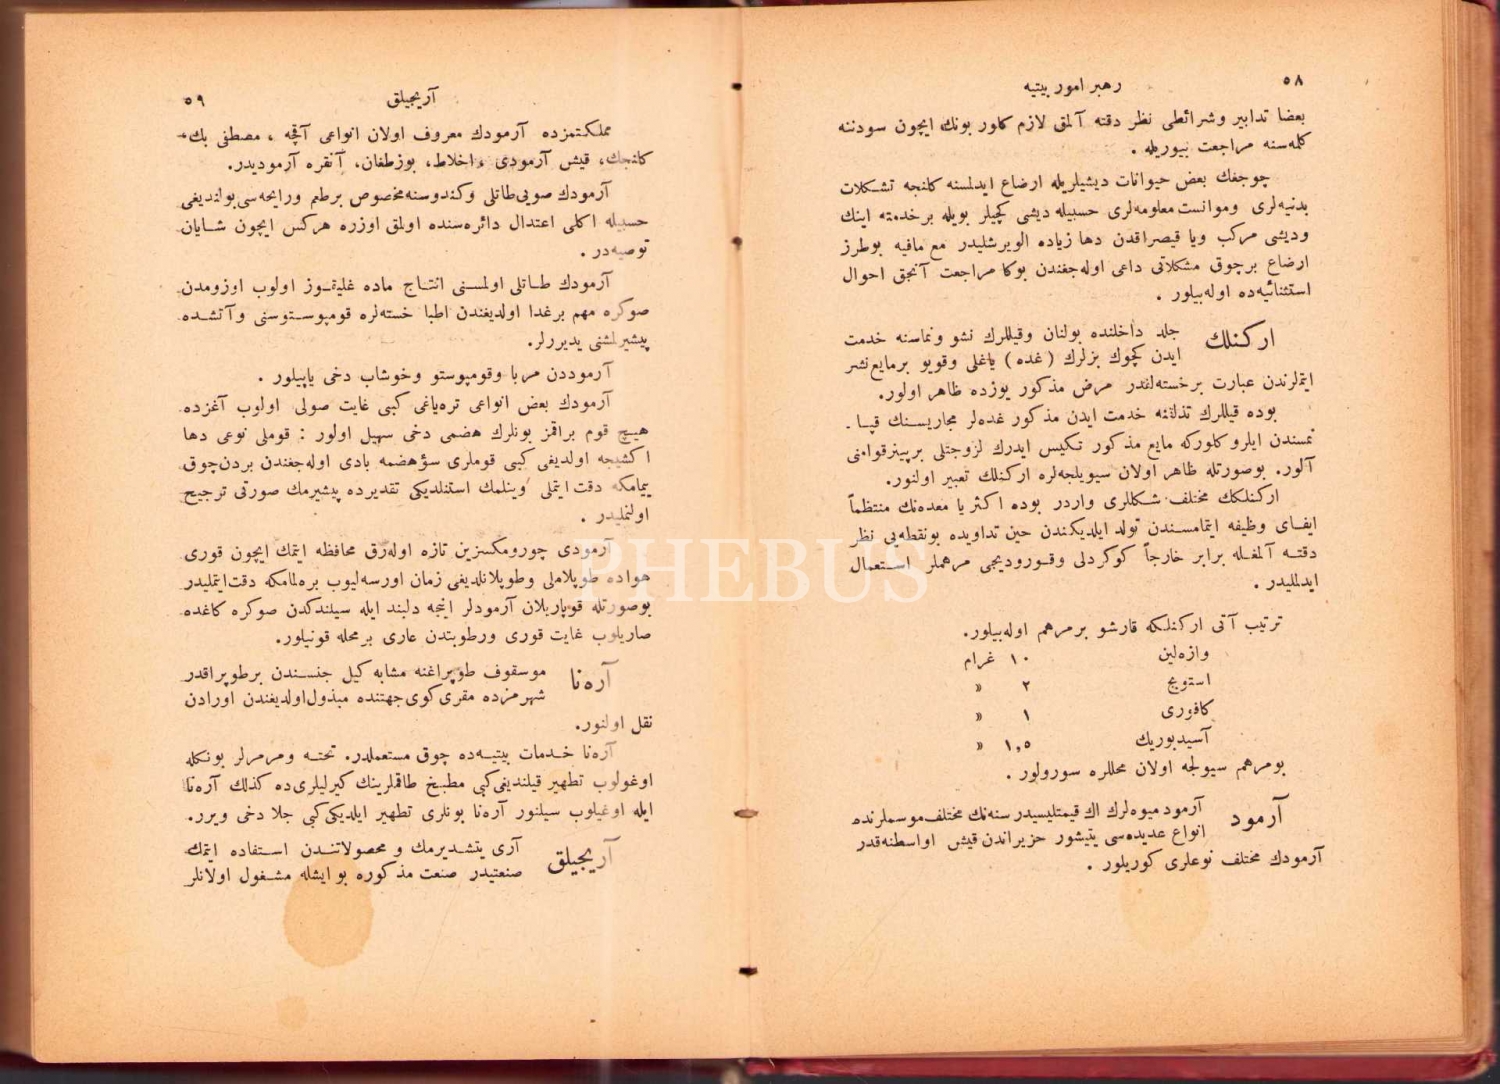 ٥٨
رهبر امور بیتیه
بعضا تدابیر وشرائطی نظر دقته آلمق لازم کلور بونك ایچون سودننه
کلمه‌سنه مراجعت بیوریله .
چوجغك بعض حیوانات دیشیلریله ارضاع ایدلمسنه کلنجه تشکلات
بدنیه‌لری وموانست معلومه‌لری حسبیله دیشی کچیلر بویله برخدمته اینك
ودیشی مرکب ویا قیصراقدن دها زیاده الویرشلیدر مع مافیه بوطرز
ارضاع برچوق مشکلاتی داعی اوله‌جغندن بوکا مراجعت آنجق احوال
استثنائیه‌ده اوله‌بیلور .
ارکنلك جلد داخلنده بولنان وقیللرك نشو ونماسنه خدمت
ایدن کچوك بزلرك (غده) یاغلی وقویو برمایع نشر
ایتملرندن عبارت برخسته‌لقدر مرض مذکور یوزده ظاهر اولور.
بوده قیللرك تذلنه خدمت ایدن مذکور غده‌لر مجاریسنك قپا ـ
نمسندن ایلرو کلورکه مایع مذکور تکیس ایدرك لزوجتلی برپینرقوامنی
آلور. بوصورتله ظاهر اولان سیویلجه‌لره ارکنلك تعبیر اولنور.
ارکنلکك مختلف شکللری واردر بوده اکثریا معده‌نك منتظماً
ایفای وظیفه ایتمامسندن تولد ایلدیکندن حین تداویده بونقطه‌یی نظر
دقتـه آلمغله برابر خارجاً کوکردلی وقـورودیجی مرهملر استعمال
ایدلملیدر .
ترتیب آتی ارکنلکه قارشو برمرهم اوله‌بیلور.
وازه‌لین ١٠ غرام
استویج ٢ «
کافوری ١ «
آسیدبوریك ١,٥ «
بومرهم سیولجه اولان محللره سورولور .
آرمود آرمود میوه‌لرك اك قیمتلیسیدر سنه‌نك مختلف موسملرنده
انواع عدیده‌سی یتیشور حزیراندن قیش اواسطنه‌قدر
آرمودك مختلف نوعلری کوریلور .
آریجیلق
٥٩
مملکتمزده آرمودك معروف اولان انواعی آقچه ، مصطفی بك،
قیش آرمودی ، اخلاط، بوزطغان، آنقره آرمودیدر.
آرمودك صویی طاتلی وکندوسنه مخصوص برطعم ورایحه‌سی بولندیغی
حسبیله اکلی اعتدال دائره‌سنده اولمق اوزره هرکس ایچون شـایان
توصیه‌در .
آرمودك طـاتلی اولمسـنی انتـاج ماده غلیقـوز اولوب اوزومدن
صوکره مهم برغدا اولدیغندن اطبا خسته‌لره قومپوسـتوسنی وآتشـده
پیشیرلمشنی یدیررلر.
آرموددن مربا وقومپوستو وخوشاب دخی یاپیلور .
آرمودك بعض انواعی تره‌یاغی کبی غایت صولی اولوب آغزده
هیـچ قوم براقمز بونلرك هضمی دخی سهیل اولور : قوملی نوعی دها
اکشیجه اولدیغی کبی قوملری سؤهضمه بادی اوله‌جغندن بردن‌چوق
ییمامکه دقت ایتملی وینلمك استنلدیکی تقدیرده پیشیرمك صورتی ترجیح
اولنملیدر .
آرمودی چورومکسزین تازه اوله‌رق محافظه ایتمك ایچون قوری
هواده طوپلاملی وطوپلانلدیغی زمان اورسه‌لیوب بره‌لمامکه دقت‌ایتملیدر
بوصورتله قوپاریلان آرمودلر انجه دلبند ایله سیلندکدن صوکره کاغده
صاریلوب غایت قوری ورطوبتدن عاری برمحله قونیلور.
آره‌نا موسقوف طوپراغنه مشابه کیل جنسندن برطوپراقدر
شهرمزده مقری‌کوی‌جهتنده مبذول‌اولدیغندن اورادن
نقل اولنور.
آره‌نا خـدمات بیتیـه‌ده چوق مستعملدر. تخته ومرمرلر بونکله
اوغولوب تطهیر قیلندیغی‌کبی مطبـخ طاقملرینك کیرلیلری‌ده کذلك آره‌نا
ایله اوغیلوب سیلنور آره‌نا بونلری تطهیر ایلدیکی‌کبی جلا دخی ویرر.
آریجیلق آری یتشدیرمك و محصولاتنـدن استفاده ایتمك
صنعتیدر صنعت مذکوره بو ایشله مشغول اولانلر
PHEBUS